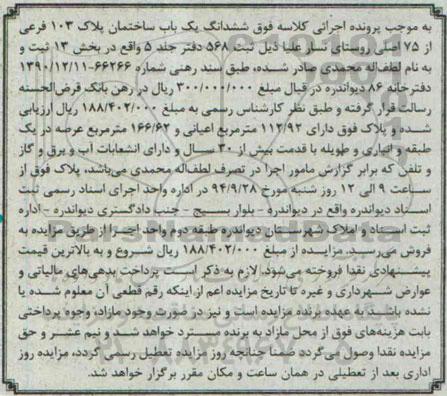 به موجب پرونده اجرائی کلاسه فوق ششدانگ یک باب ساختمان پلاک ۱۰۳ فرعی
از ۷۵ اصلی روستای نسار علیا ذیل ثبت ۵۶۸ دفتر جلد ۵ واقع در بخش ۱۳ ثبت و
به نام لطف‌اله محمدی صادر شده، طبق سند رهنی شماره ۶۶۲۶۶-۱۳۹۰/۱۲/۱۱
دفترخانه ۸۶ دیواندره در قبال مبلغ ۳۰۰/۰۰۰/۰۰۰ ریال در رهن بانک قرض‌الحسنه
رسالت قرار گرفته و طبق نظر کارشناس رسمی به مبلغ ۱۸۸/۴۰۲/۰۰۰ ریال ارزیابی
شده و پلاک فوق دارای ۱۱۲/۹۲ مترمربع اعیانی و ۱۶۶/۶۲ مترمربع عرصه در یک
طبقه و انباری و طویله با قدمت بیش از ۳۰ سال و دارای انشعابات آب و برق و گاز
و تلفن که برابر گزارش مامور اجرا در تصرف لطف‌اله محمدی می‌باشد، پلاک فوق از
ساعت ۹ الی ۱۲ روز شنبه مورخ ۹۴/۹/۲۸ در اداره واحد اجرای اسناد رسمی ثبت
اسناد دیواندره واقع در دیواندره - بلوار بسیج - جنب دادگستری دیواندره - اداره
ثبت اسناد و املاک شهرستان دیواندره طبقه دوم واحد اجرا از طریق مزایده به
فروش می‌رسد. مزایده از مبلغ ۱۸۸/۴۰۲/۰۰۰ ریال شروع و به بالاترین قیمت
پیشنهادی نقدا فروخته می‌شود. لازم به ذکر است پرداخت بدهی‌های مالیاتی و
عوارض شهرداری و غیره تا تاریخ مزایده اعم از اینکه رقم قطعی آن معلوم شده یا
نشده باشد به عهده برنده مزایده است و نیز در صورت وجود مازاد، وجوه پرداختی
بابت هزینه‌های فوق از محل مازاد به برنده مسترد خواهد شد و نیم عشر و حق
مزایده نقدا وصول می‌گردد ضمنا چنانچه روز مزایده تعطیل رسمی گردد، مزایده روز
اداری بعد از تعطیلی در همان ساعت و مکان مقرر برگزار خواهد شد.